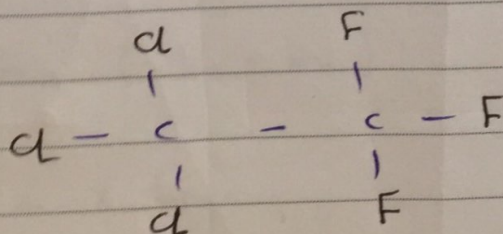 Cl F
Cl - C - C - F
Cl F